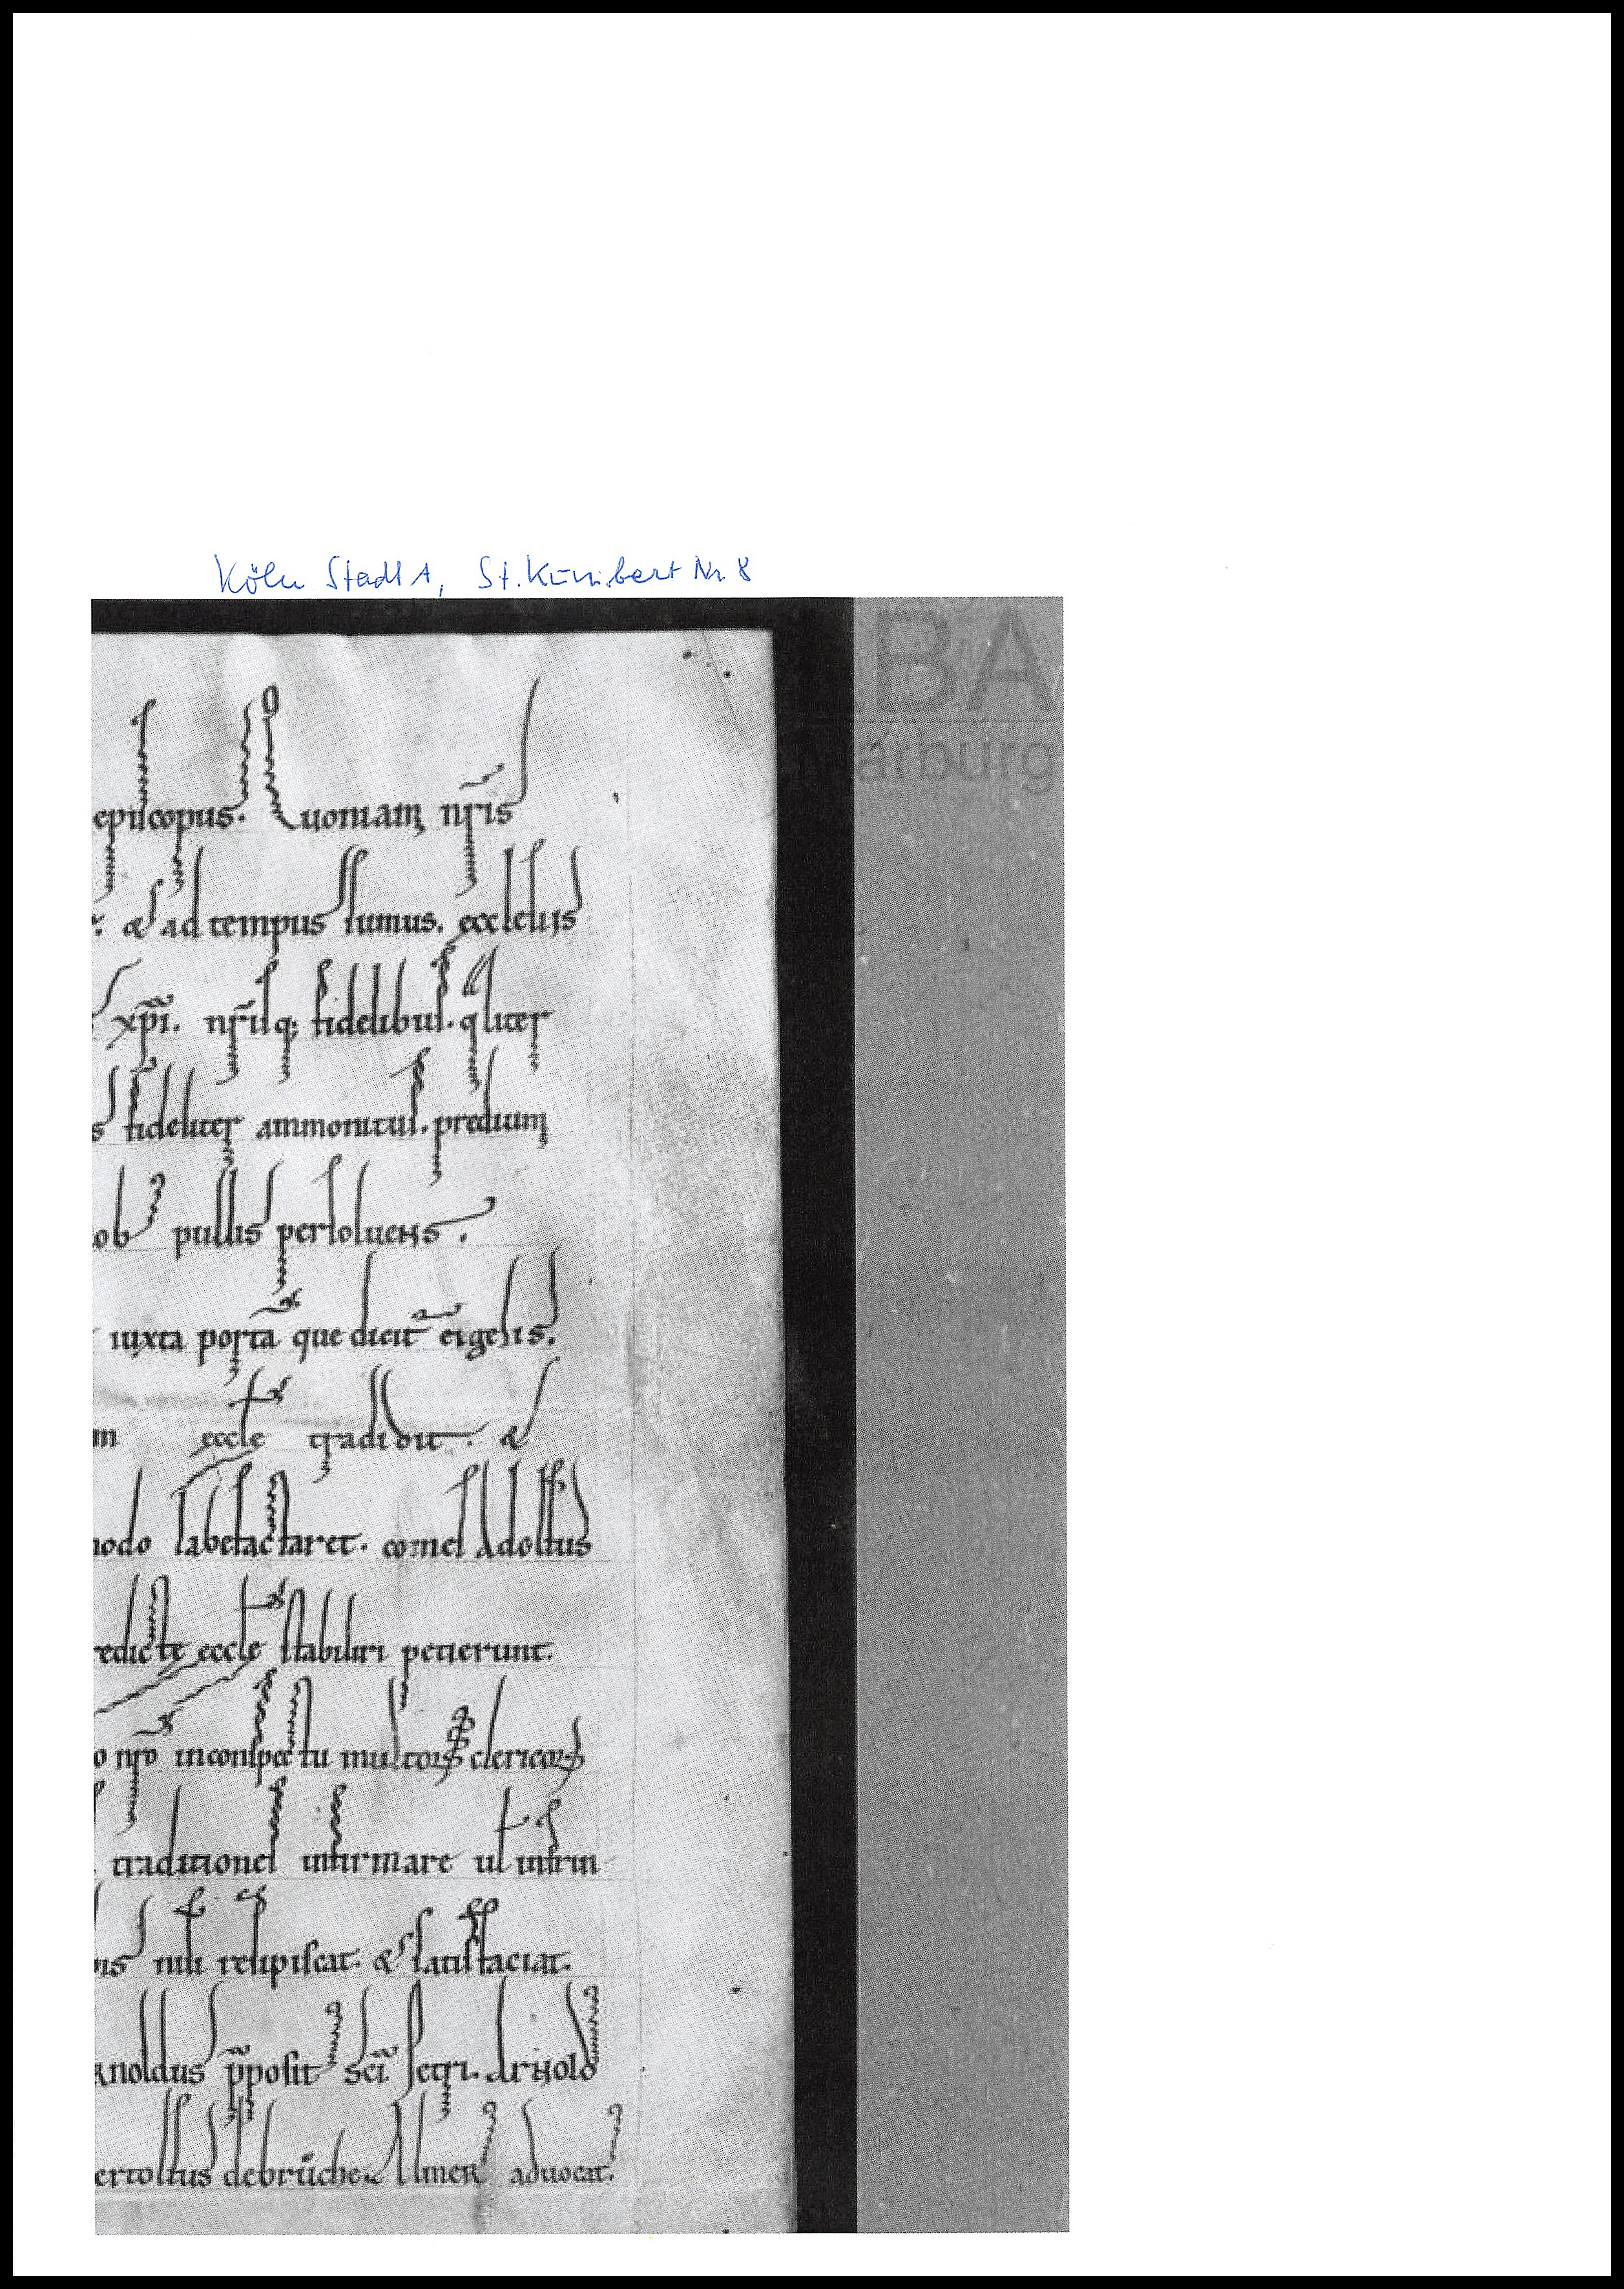 Köln StadtA, St. Kunibert Nr. 8
BA
arburg
epiſcopus. Quoniam nr̄is
& ad tempus ſumus. eccleſiis
xp̄i. nr̄iſq; fidelibuſ. qͣliter
s fideliter ammonituſ. predium
ob pullis perſoluens.
iuxta portā que dicit̄ eigelis.
m eccl̄e tradidit. &
odo labefactaret. comeſ Adolfus
edicte eccl̄e ſtabiliri petierunt.
o nr̄o inconſpectu multoꝝ clericoꝝ
traditioneſ infirmare ul̄ infrin
niſi reſipiſcat. & ſatiſfaciat.
rnoldus p̄poſit᾽ sc̄i Petri. Arnold᾽
ertolfus de bruͦche. Almer᾽ aduocat᾽